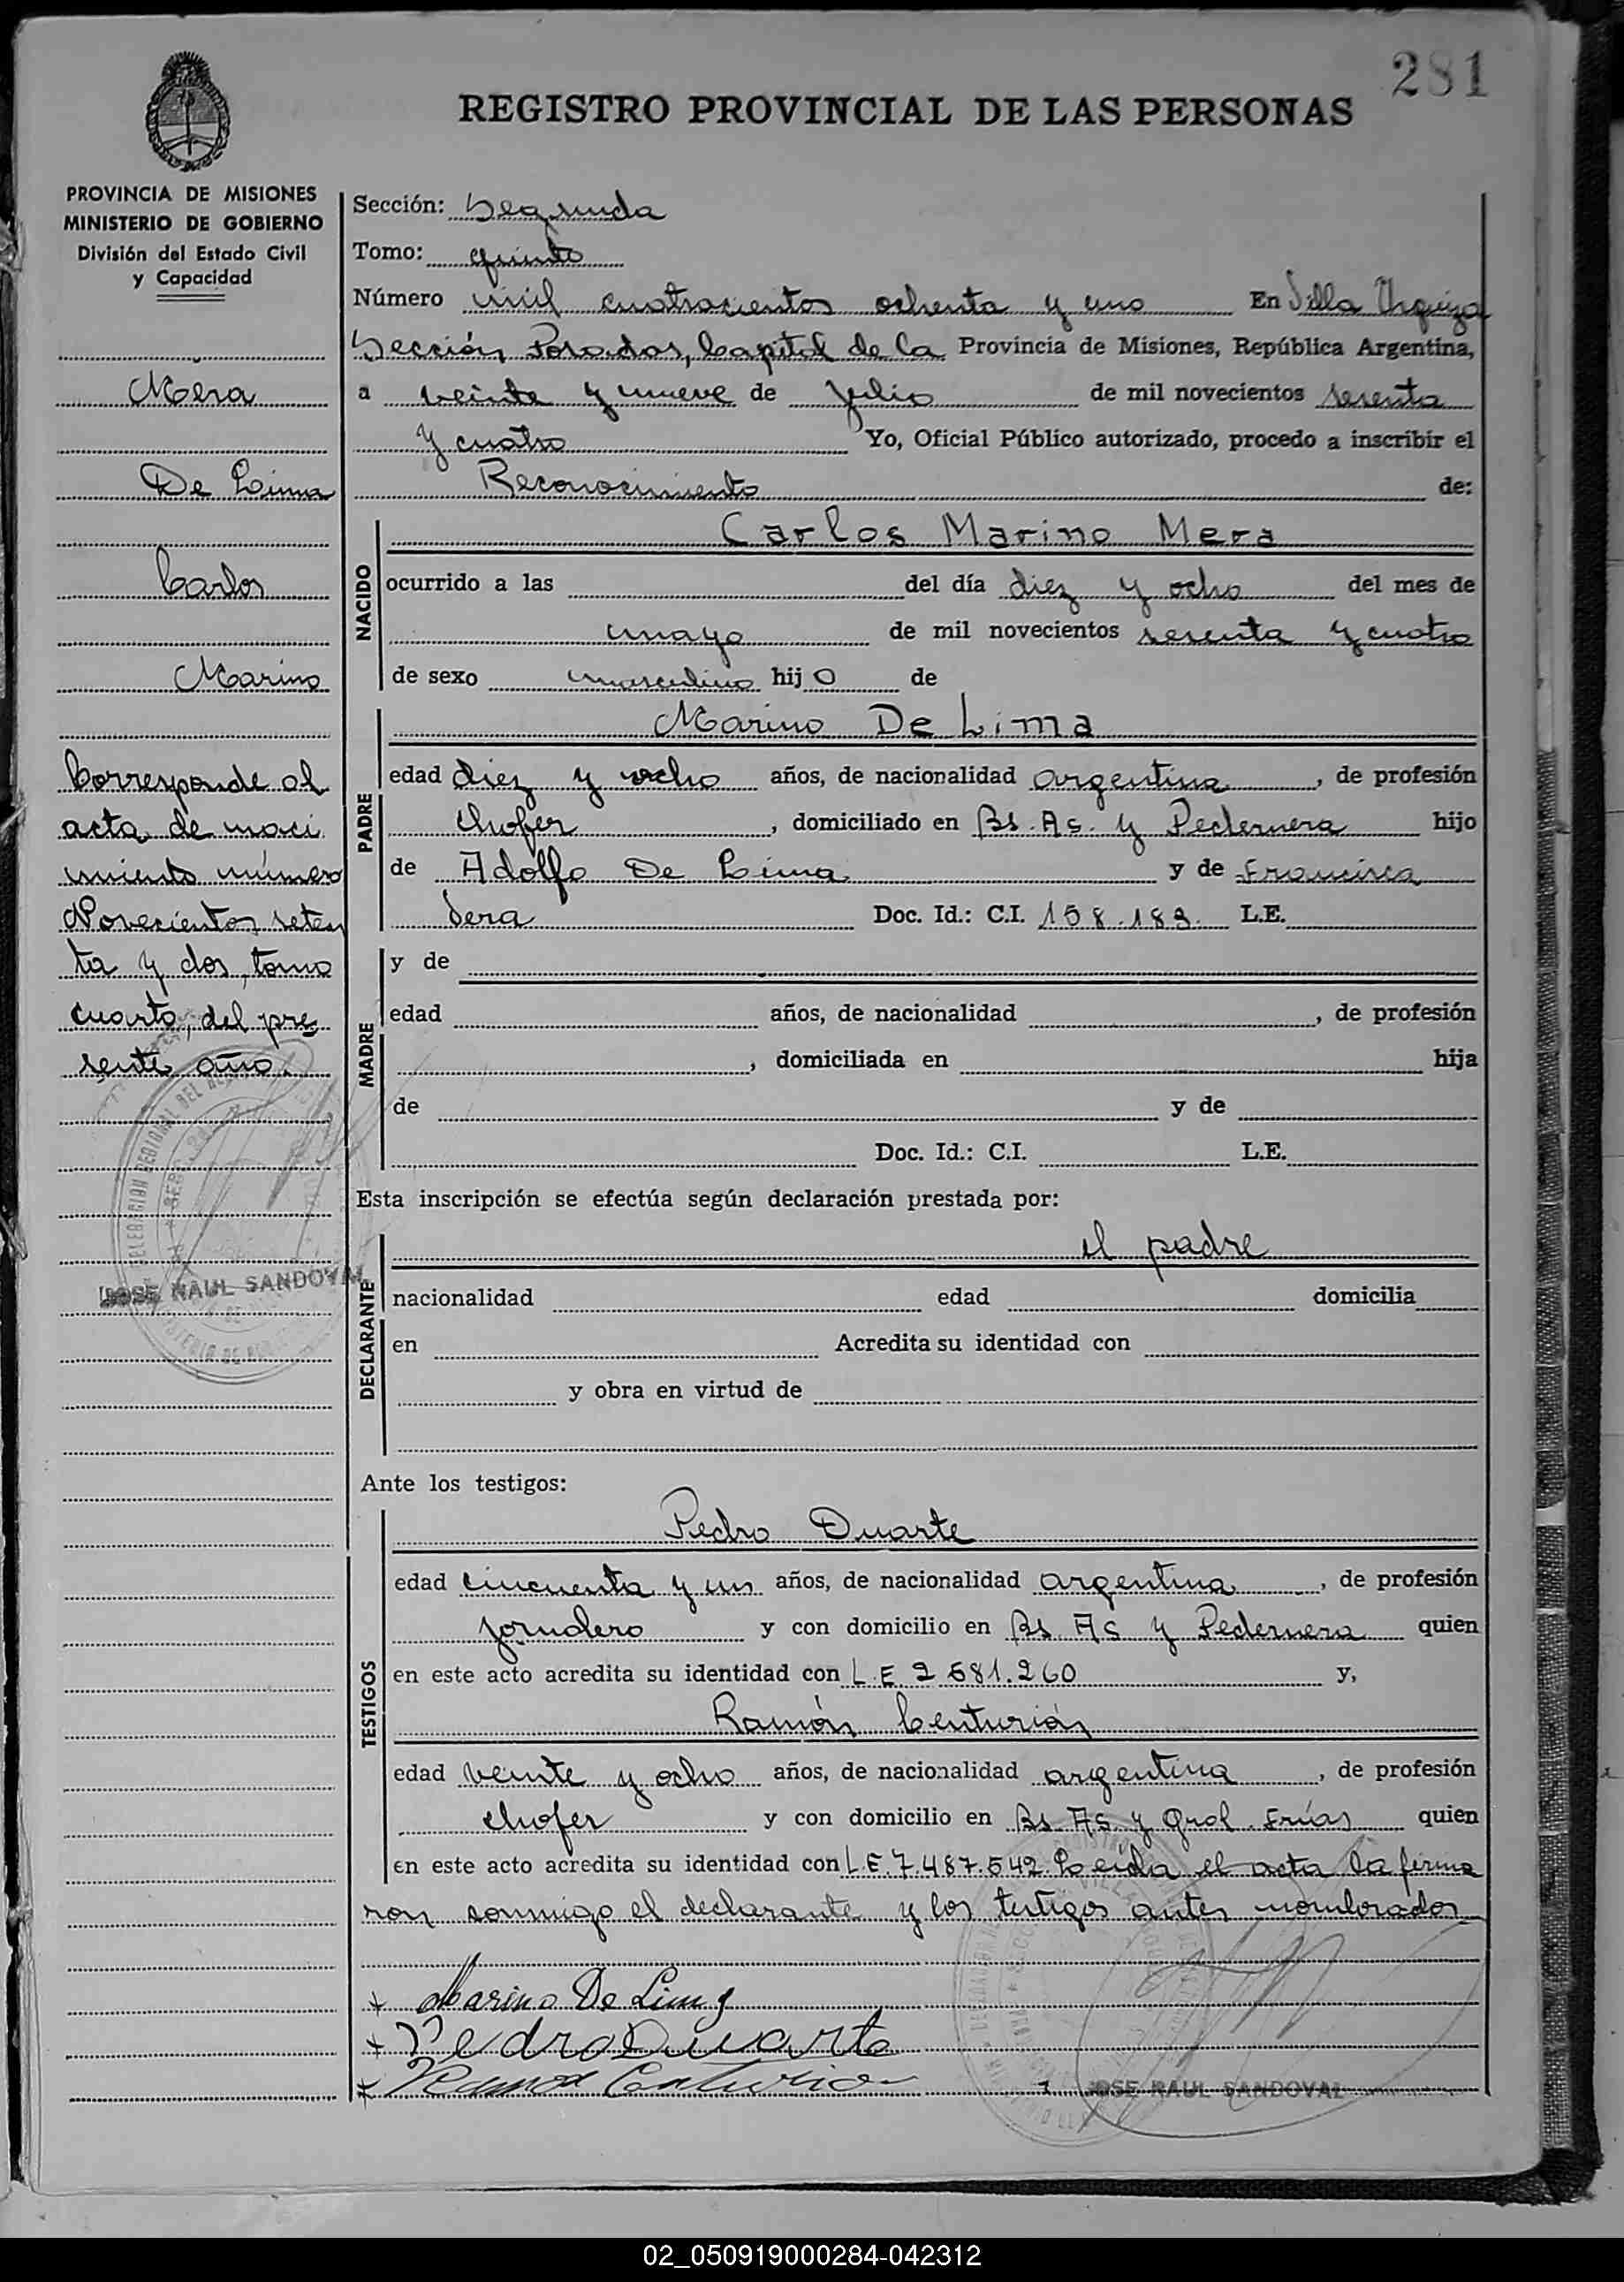 281
REGISTRO PROVINCIAL DE LAS PERSONAS
PROVINCIA DE MISIONES
MINISTERIO DE GOBIERNO
División del Estado Civil
y Capacidad
Mera
De Lima
Carlos
Marino
Corresponde al
acta de naci
miento número
Novecientos seten
ta y dos, tomo
cuarto, del pre
sente año.
JOSE RAUL SANDOVAL
Sección: Segunda
Tomo: quinto
Número mil cuatrocientos ochenta y uno En Villa Urquiza
Sección Posadas, Capital de la Provincia de Misiones, República Argentina,
a veinte y nueve de julio de mil novecientos sesenta
y cuatro Yo, Oficial Público autorizado, procedo a inscribir el
Reconocimiento de:
NACIDO
Carlos Marino Mera
ocurrido a las del día diez y ocho del mes de
mayo de mil novecientos sesenta y cuatro
de sexo masculino hijo de
PADRE
Marino De Lima
edad diez y ocho años, de nacionalidad argentina, de profesión
chofer, domiciliado en Bs. As. y Pedernera hijo
de Adolfo De Lima y de Francisca
Doc. Id.: C.I. 158.183. L.E.
MADRE
y de
edad años, de nacionalidad , de profesión
, domiciliada en hija
de y de
Doc. Id.: C.I. L.E.
Esta inscripción se efectúa según declaración prestada por:
DECLARANTE
el padre
nacionalidad edad domicilia
en Acredita su identidad con
y obra en virtud de
Ante los testigos:
TESTIGOS
Pedro Duarte
edad cincuenta y un años, de nacionalidad argentina, de profesión
jornalero y con domicilio en Bs As y Pedernera quien
en este acto acredita su identidad con L.E 2.581.260 y,
Ramón Centurión
edad veinte y ocho años, de nacionalidad argentina, de profesión
chofer y con domicilio en Bs. As. y Gral. Frías quien
en este acto acredita su identidad con L.E. 7.487.542. Leída el acta la firma
ron conmigo el declarante y los testigos antes nombrados
Marino De Lima
Pedro Duarte
Ramon Centurion
JOSE RAUL SANDOVAL
02_050919000284-042312